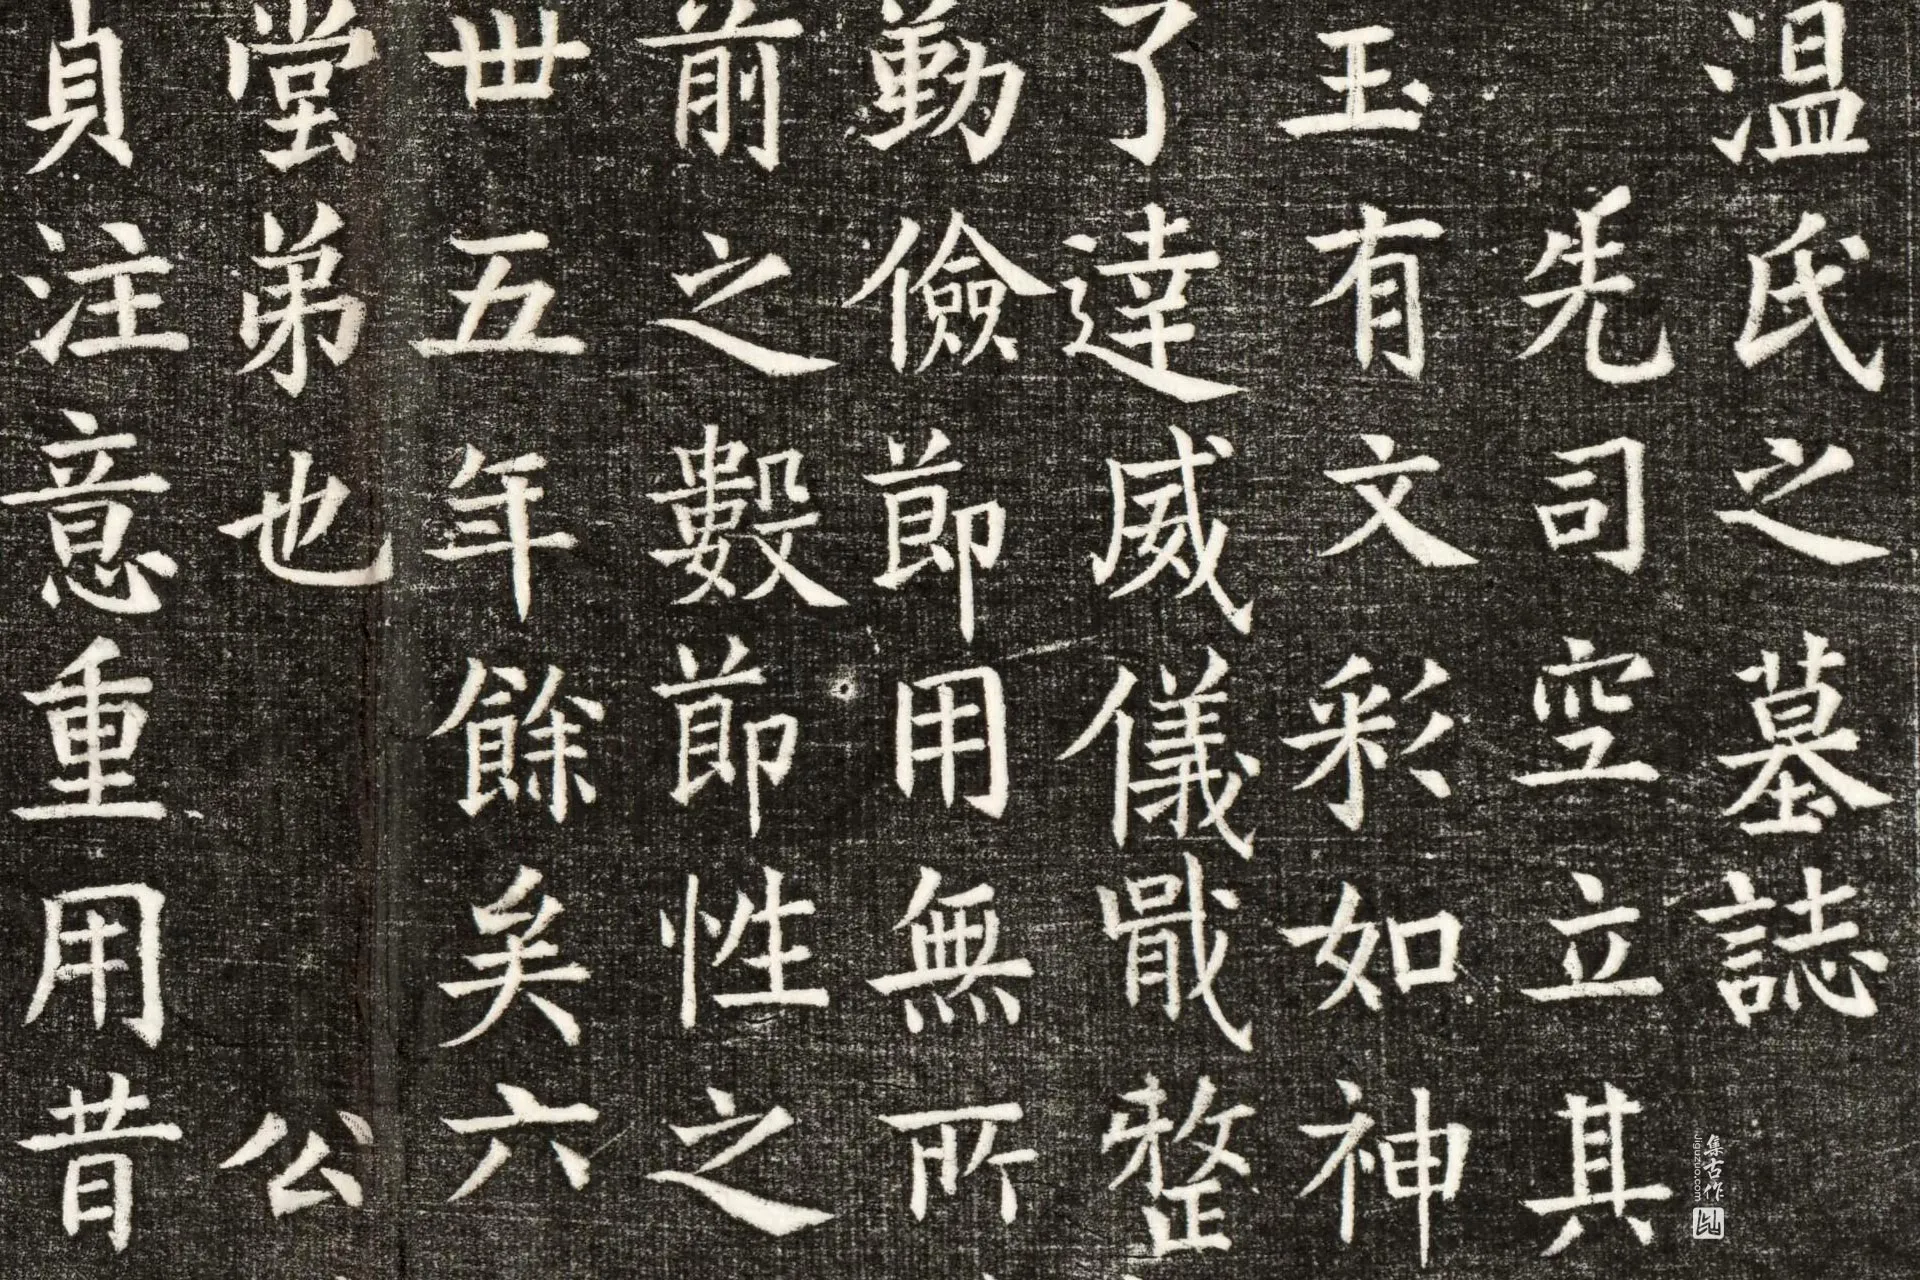 温氏之墓誌
先司空立其
玉有文彩如神
了達威儀戢整
勤儉節用無所
前之數節性之
世五年餘矣六
堂弟也 公
貞注意重用昔
集古作
jiguzuo.com